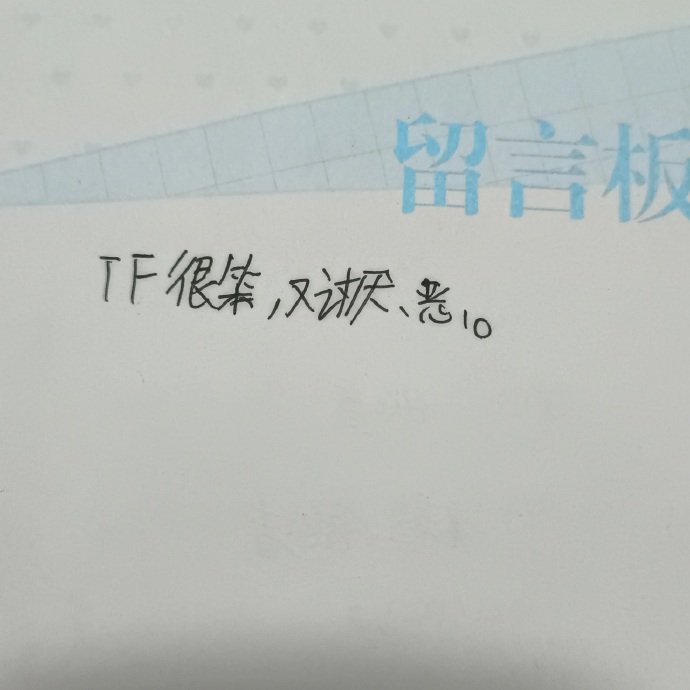 留言板
TF很笨,又讨厌、恶。